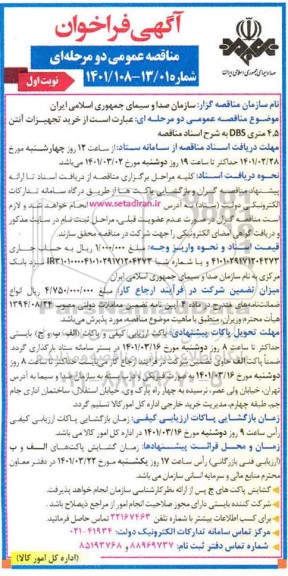 آگهی فراخوان
مناقصه عمومی دو مرحله‌ای
شماره ۱۳/۰۱۵-۱۴۰۱/۱۰۸
نوبت اول
صدا و سیمای جمهوری اسلامی ایران
نام سازمان مناقصه گزار: سازمان صدا و سیمای جمهوری اسلامی ایران
موضوع مناقصه عمومی دو مرحله ای: عبارت است از خرید تجهیزات آنتن
۴.۵ متری DBS به شرح اسناد مناقصه
مهلت دریافت اسناد مناقصه از سامانه ستاد: از ساعت ۱۲ روز چهارشنبه مورخ
۱۴۰۱/۰۲/۲۸ حداکثر تا ساعت ۱۹ روز دوشنبه مورخ ۱۴۰۱/۰۳/۰۲ می‌باشد
نحوه دریافت اسناد: کلیه مراحل برگزاری مناقصه از دریافت اسناد تا ارائه
پیشنهاد مناقصه گران و بازگشایی پاکت ها از طریق درگاه سامانه تدارکات
الکترونیکی دولت (ستاد) به آدرس www.setadiran.ir انجام خواهد شد و لازم
است مناقصه گران در صورت عدم عضویت قبلی، مراحل ثبت نام در سایت مذکور
و دریافت گواهی امضای الکترونیکی را جهت شرکت در مناقصه محقق سازند.
قیمت اسناد و نحوه واریز وجه: مبلغ ۱/۰۰۰/۰۰۰ ریال به حساب جاری
مرکزی به نام سازمان صدا و سیمای جمهوری اسلامی ایران
میزان تضمین شرکت در فرآیند ارجاع کار: مبلغ ۴/۷۵۰/۰۰۰/۰۰۰ ریال انواع
ضمانت‌نامه‌های مندرج در ماده ۴ آیین نامه تضمین معاملات دولتی مصوب ۱۳۹۴/۰۸/۲۴
هیأت محترم وزیران منطبق با ماهیت موضوع مناقصه مورد پذیرش می باشد.
مهلت تحویل پاکات پیشنهادی: پاکت ارزیابی کیفی و پاکات (الف، ب و ج) بایستی
حداکثر تا ساعت ۸ روز دوشنبه مورخ ۱۴۰۱/۰۳/۱۶ در بستر سامانه ستاد بارگذاری گردد.
روز دوشنبه مورخ ۱۴۰۱/۰۳/۱۶ به نشانی
تهران، خیابان ولی عصر، نرسیده به چهار راه پارک وی، خیابان استقلال، ساختمان اداری جام
جم، طبقه چهارم، مدیریت خرید خارجی اداره کل امور کالا تسلیم گردد.
زمان بازگشایی پاکات ارزیابی کیفی: زمان بازگشائی پاکات ارزیابی کیفی
رأس ساعت ۹ روز دوشنبه مورخ ۱۴۰۱/۰۳/۱۶ در اداره کل امور کالا می باشد.
زمان و محل قرائت پیشنهادها: زمان گشایش پاکت‌های الف و ب
(ارزیابی فنی بازرگانی) رأس ساعت ۱۷ روز یکشنبه مورخ ۱۴۰۱/۰۳/۲۲ در دفتر معاون
محترم منابع مالی و سرمایه انسانی سازمان می باشد.
گشایش پاکت های ج پس از ارائه نظر کارشناسی سازمان انجام خواهد پذیرفت.
شرکت کننده بایستی دارای مجوز صلاحیت انجام امور از مراجع ذیصلاح باشد.
برای کسب اطلاعات بیشتر با شماره تلفن ۲۲۱۶۷۴۶۳ تماس حاصل فرمائید.
مرکز تماس سامانه تدارکات الکترونیک دولت: ۴۱۹۳۴-۰۲۱
شماره تماس دفتر ثبت نام: ۸۸۹۶۹۷۳۷ و ۸۵۱۹۳۷۶۸
(اداره کل امور کالا)